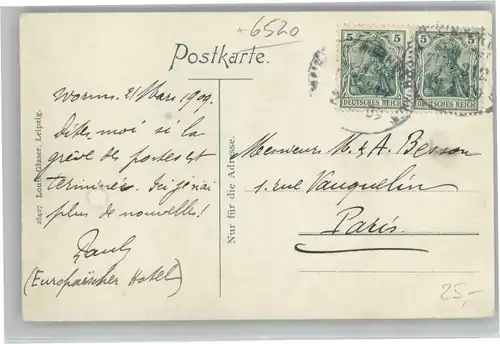 +6520
Postkarte.
5 5 5 5
DEUTSCHES REICH DEUTSCHES REICH
Worms. 21 Mars 1909.
Dites moi si la
grève des postes est
terminée. Ici j'ai
plus de nouvelles!
(Europäischer Hotel)
28407 Louis Glaser, Leipzig.
Nur für die Adresse.
Messieurs M. & A. Besson
1. rue Vauquelin
Paris.
25,-